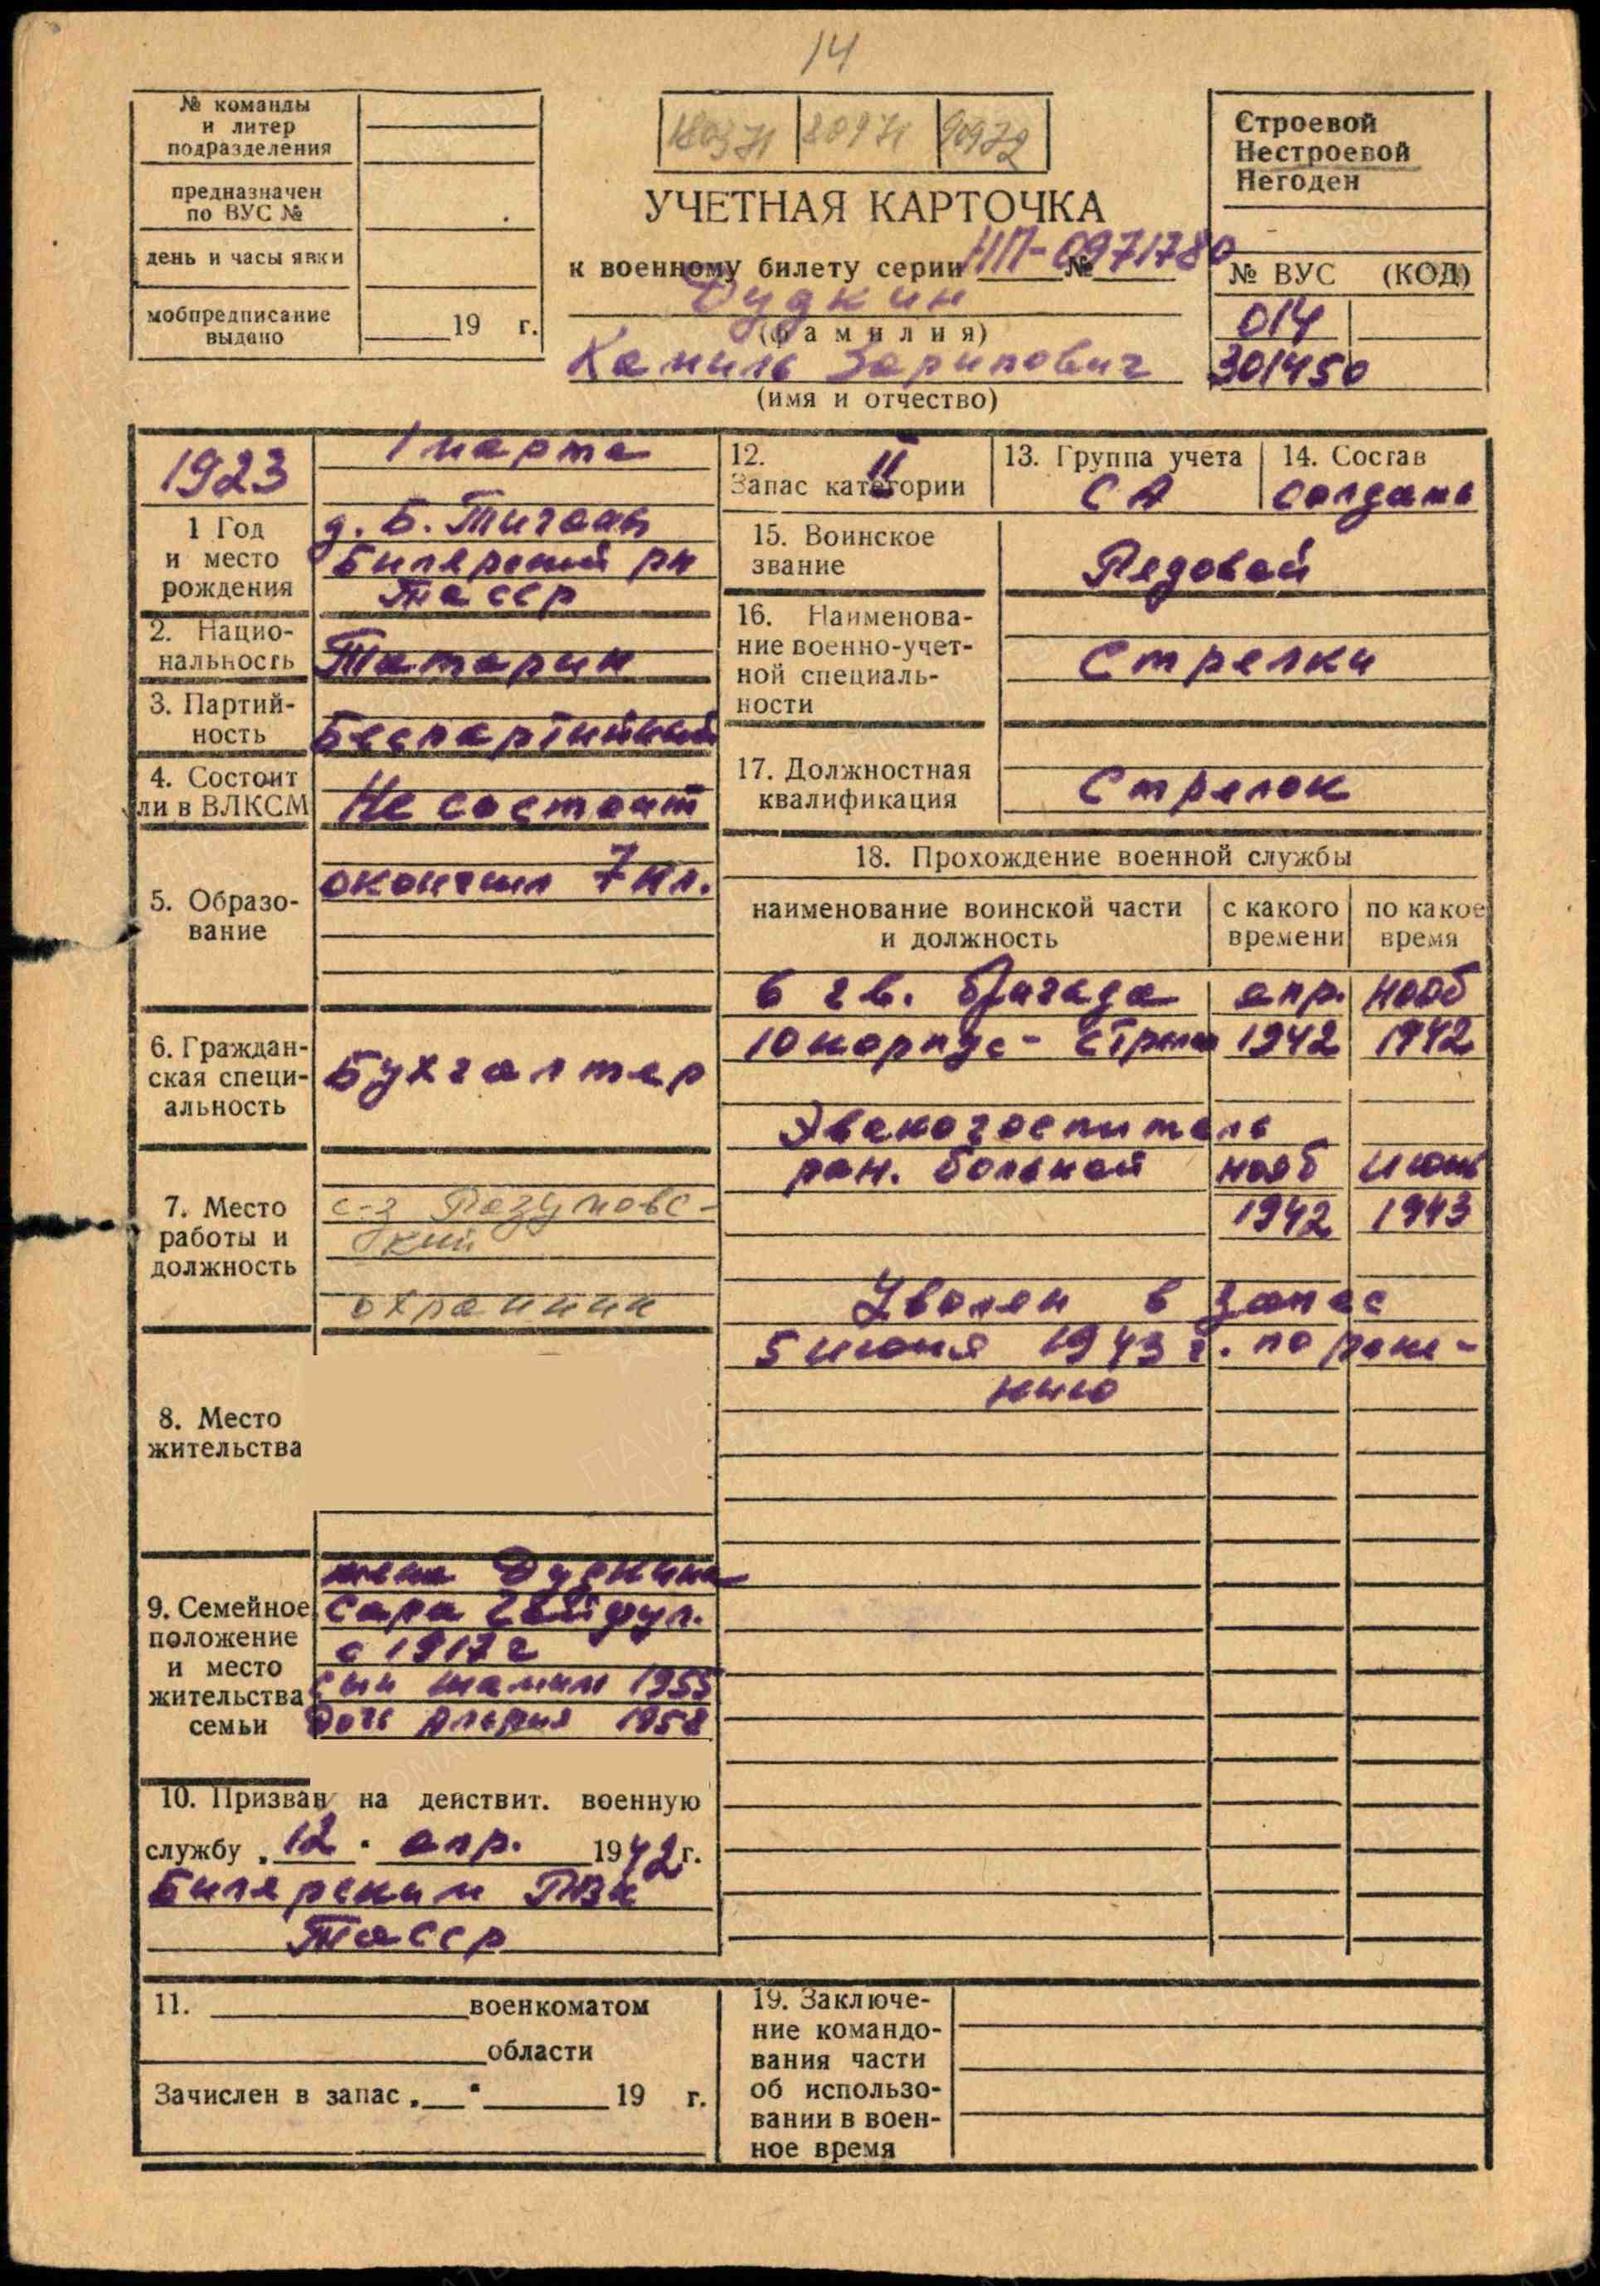 14
№ команды
и литер
подразделения
предназначен
по ВУС №
день и часы явки
мобпредписание
выдано
19 г.
80971
90972
УЧЕТНАЯ КАРТОЧКА
к военному билету серии НП-0971780 №
Дудкин
(фамилия)
Камиль Зарипович
(имя и отчество)
Строевой
Нестроевой
Негоден
№ ВУС (КОД)
014
301450
1923
1 марта
1 Год
и место
рождения
д. Б. Тиганы
Билярский рн
ТАССР
2. Нацио-
нальность
Татарин
3. Партий-
ность
Беспартийный
4. Состоит
ли в ВЛКСМ
Не состоит
5. Образо-
вание
окончил 7 кл.
6. Граждан-
ская специ-
альность
Бухгалтер
7. Место
работы и
должность
с-з Разумовс-
кий
охранник
8. Место
жительства
9. Семейное
положение
и место
жительства
семьи
жена Дудкина
Сара
с 1917 г
сын Шамиль 1955
дочь 1958
10. Призван на действит. военную
службу „12" апр. 1942 г.
Билярским РВК
ТАССР
11. военкоматом
области
Зачислен в запас „ " 19 г.
12.
Запас категории
II
13. Группа учета
СА
14. Состав
солдаты
15. Воинское
звание
Рядовой
16. Наименова-
ние военно-учет-
ной специаль-
ности
Стрелки
17. Должностная
квалификация
Стрелок
18. Прохождение военной службы
наименование воинской части
и должность
с какого
времени
по какое
время
6 гв. бригада апр. нояб
10 корпус - стрелок 1942 1942
Эвакогоспиталь
ран. больной нояб июнь
1942 1943
Уволен в запас
5 июня 1943 г. по ране-
нию
19. Заключе-
ние командо-
вания части
об использо-
вании в воен-
ное время